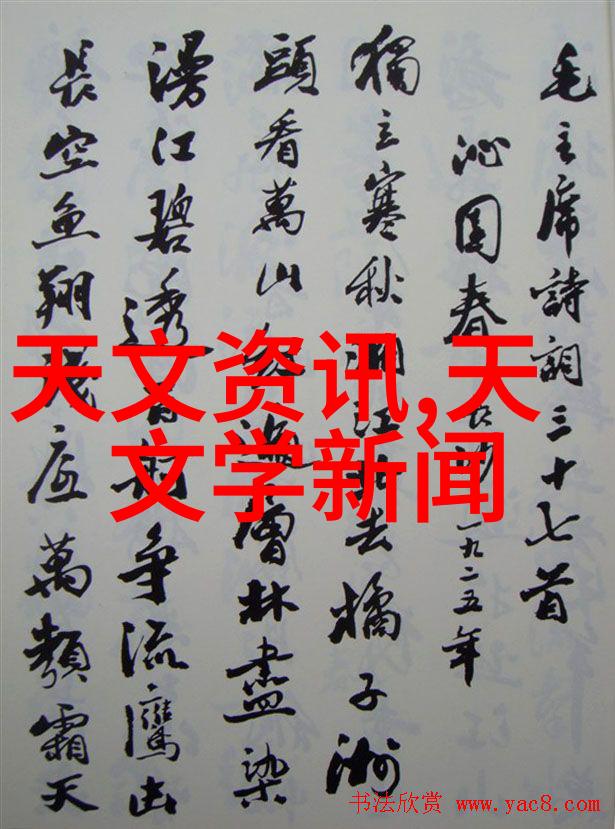 毛主席詩詞三十七首
沁園春 长沙 一九二五年
獨立寒秋湘江北去橘子洲
頭看萬山红遍層林盡染
漫江碧透百舸争流鷹击
長空鱼翔浅底萬類霜天
天文资讯,天
文学新闻
书法欣赏 www.yac8.com